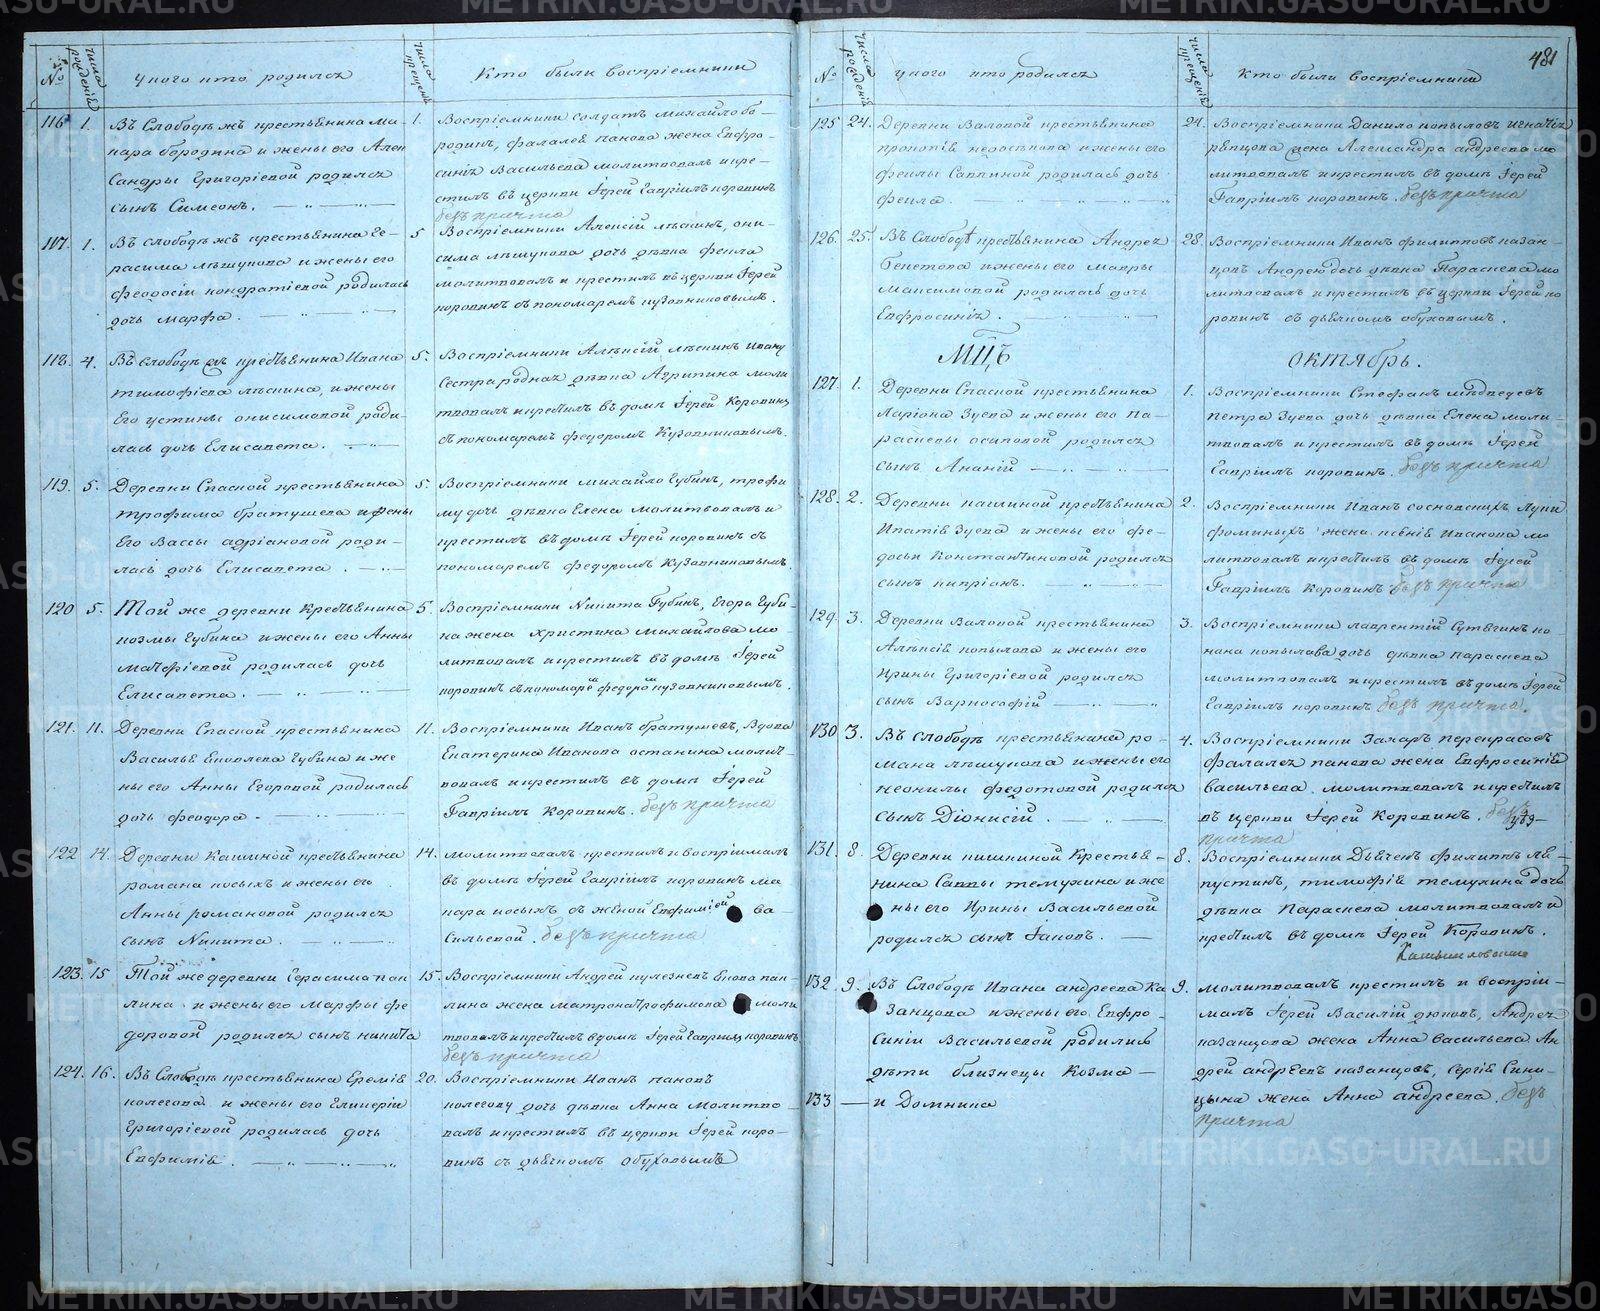 №
числа рожденiя
У кого кто родился
числа крещенiя
Кто были воспрiемники
116. 1. Въ Слободѣ жъ крестьянина Ма-
кара бородина и жены его Алек
сандры Григорiевой родился
сынъ Симеонъ.
1. Воспрiемники солдатъ михайло бо-
родинъ, фалалея панова жена Евфро-
синiя Васильева молитвовалъ и кре-
стилъ въ церкви Iерей Гаврiилъ коровинъ
безъ причта
117. 1. Въ слободѣ жъ крестьянина Ге-
расима лѣшукова и жены его
феодосiи кондратiевой родилась
дочь марфа.
5 Воспрiемники Алексiй лѣпинъ, они-
сима лѣшукова дочь дѣвка фекла
молитвовалъ и крестилъ въ церкви Iерей
коровинъ съ пономаремъ кузовниковымъ.
118. 4. Въ слободѣ жъ крестьянина Ивана
тимофiева лѣпина, и жены
Его устины онисимовой роди-
лась дочь Елисавета.
5. Воспрiемники Алексiй лѣпинъ Ивану
Сестра родная дѣвка Агрипина моли
твовалъ и крестилъ въ домѣ Iерей Коровинъ
съ пономаремъ федоромъ Кузовниковымъ.
119. 5. Деревни Спаской крестьянина
трофима братушева и жены
Его Вассы адрiановой роди-
лась дочь Елисавета.
5. Воспрiемники михайло Губинъ, трофи
му дочь дѣвка Елена молитвовалъ и
крестилъ въ домѣ Iерей коровинъ съ
пономаремъ федоромъ Кузовниковымъ.
120 5. Той же деревни Крестьянина
козмы Губина и жены его Анны
матфiевой родилась дочь
Елисавета.
5. Воспрiемники Никита Губинъ, Егора Губи-
на жена христина михайлова мо-
литвовалъ и крестилъ въ домѣ Iерей
коровинъ съ пономаремъ федоромъ кузовниковымъ.
121. 11. Деревни Спаской крестьянина
Василья Яковлева Губина и же
ны его Анны Егоровой родилась
дочь феодора.
11. Воспрiемники Иванъ братушевъ, вдова
Екатерина Иванова останина молит-
вовалъ и крестилъ въ домѣ Iерей
Гаврiилъ Коровинъ. безъ причта
122 14. Деревни Кашиной крестьянина
романа косыхъ и жены его
Анны романовой родился
сынъ Никита.
14. молитвовалъ крестилъ и воспрiималъ
въ домѣ Iерей Гаврiилъ коровинъ ма
кара косыхъ съ женой Евфимiей ва-
сильевой. безъ причта
123. 15 Той же деревни Герасима пав
лина и жены его Марфы фе
доровой родился сынъ никита
15. Воспрiемники Андрей кулезневъ Якова пав
лина жена матрона трофимова моли
твовалъ и крестилъ в домѣ Iерей Гаврiилъ коровинъ
безъ причта
124. 16. Въ Слободѣ крестьянина Еремiя
колегова и жены его Гликерiи
Григорiевой родилась дочь
Евфимiя.
20. Воспрiемники Иванъ пановъ
колегову дочь дѣвка Анна Молитво-
валъ и крестилъ въ церкви Iерей коро-
винъ съ дьячкомъ обуховымъ
481
№
числа рожденiя
у кого кто родился
числа крещенiя
Кто были воспрiемники
125 24. Деревни Валовой крестьянина
феклы Саввиной родилась дочь
фекла.
24. Воспрiемники Данило копыловъ игнатiя
рѣпцова жена Александра андреева мо
литвовалъ и крестилъ въ домѣ Iерей
Гаврiилъ коровинъ. безъ причта
126. 25. Въ Слободѣ крестьянина Андрея
Бекетова и жены его мавры
Максимовой родилась дочь
Евфросинiя.
28. Воспрiемники Иванъ филипповъ казан-
цовъ Андрею дочь дѣвка Параскева мо
литвовалъ и крестилъ въ церкви Iерей ко
ровинъ съ дьячкомъ обуховымъ.
МЦЪ октябрь.
127. 1. Деревни Спаской крестьянина
Ларiона Зуева и жены его Па-
раскевы осиповой родился
сынъ Ананiй
1. Воспрiемники Стефанъ мѣдведевъ
петра Зуева дочь дѣвка Елена моли-
твовалъ и крестилъ въ домѣ Iерей
Гаврiилъ коровинъ. безъ причта
128. 2. Деревни кашиной крестьянина
Ипатiя Зуева и жены его фе-
досьи Константиновой родился
сынъ киприанъ.
2. Воспрiемники Иванъ сосновскихъ Луки
фоминыхъ жена ксенiя Иванова мо
литвовалъ и крестилъ въ домѣ Iерей
Гаврiилъ Коровинъ безъ причта
129. 3. Деревни Валовой крестьянина
Алексiя копылова и жены его
Ирины Григорiевой родился
сынъ Варнософiй
3. Воспрiемники лаврентiй Сутягинъ ко-
нана копылова дочь дѣвка параскева
молитвовалъ и крестилъ въ домѣ Iерей
Гаврiилъ коровинъ безъ причта.
130 3. Въ слободѣ крестьянина ро-
мана лѣшукова и жены его
неонилы федотовой родился
сынъ Дiонисiй
4. Воспрiемники Захаръ перекрасовъ
фалалея панова жена Евфросинiя
васильева. молитвовалъ и крестилъ
въ церкви Iерей Коровинъ. безъ
причта
131. 8. Деревни кишкиной Крестья-
нина Саввы темухина и же
ны его Ирины Васильевой
родился сынъ Iаковъ.
8. Воспрiемники Дьячекъ филиппъ ля-
пустинъ, тимофiя темухина дочь
дѣвка Параскева молитвовалъ и
крестилъ въ домѣ Iерей Коровинъ.
132. 9. Въ Слободѣ Ивана андреева Ка
занцова и жены его Евфро-
синiи Васильевой родились
дѣти близнецы Козма
133 — и Домника
9. молитвовалъ крестилъ и воспрiи-
малъ Iерей Василiй дюковъ, Андрея
казанцова жена Анна васильева Ан
дрей андреевъ казанцовъ, Сергiя Сини-
цына жена Анна андреева. безъ
причта
METRIKI.GASO-URAL.RU